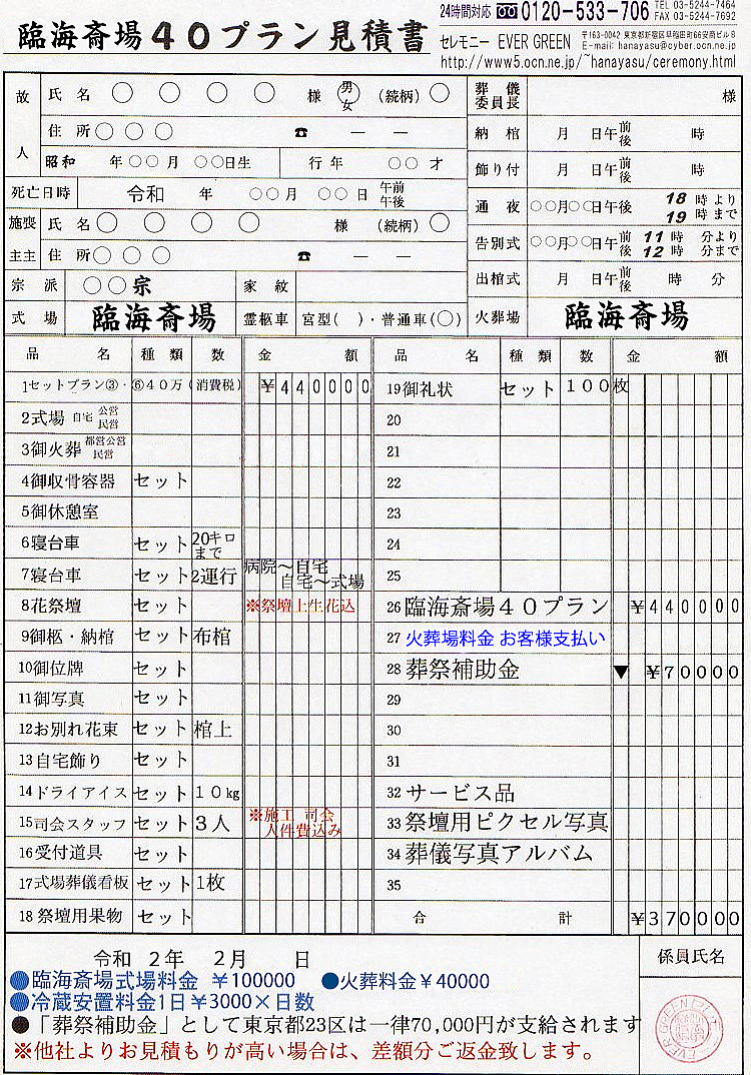 臨海斎場40プラン見積書
24時間対応 0120-533-706 TEL 03-5244-7464
FAX 03-5244-7692
セレモニー EVER GREEN 〒163-0042 東京都新宿区早稲田町66安商ビル8
E-mail: hanayasu@cyber.ocn.ne.jp
http://www5.ocn.ne.jp/~hanayasu/ceremony.html
故人 氏名 ○ ○ ○ ○ 様 男女 (続柄) ○
住所 ○ ○ ○ ☎ ― ―
昭和 年○○月 ○○日生 行年 ○○才
死亡日時 令和 年 ○○月 ○○日 午前午後
施主 喪主 氏名 ○ ○ ○ ○ 様 (続柄) ○
住所 ○ ○ ○ ☎ ― ―
宗派 ○○宗 家紋
式場 臨海斎場 霊柩車 宮型( )・普通車(○)
葬儀委員長 様
納棺 月 日午前後 時
飾り付 月 日午前後 時
通夜 ○○月○○日午後 18時より 19時まで
告別式 ○○月○○日午前後 11時 分より 12時 分まで
出棺式 月 日午前後 時 分
火葬場 臨海斎場
品名 種類 数 金額
1セットプラン③・⑥40万(消費税) ¥440000
2式場 自宅 公営 民営
3御火葬 都営公営 民営
4御収骨容器 セット
5御休憩室
6寝台車 セット 20キロまで
7寝台車 セット 2運行 病院〜自宅 自宅〜式場
8花祭壇 セット ※祭壇上生花込
9御柩・納棺 セット 布棺
10御位牌 セット
11御写真 セット
12お別れ花束 セット 棺上
13自宅飾り セット
14ドライアイス セット 10kg
15司会スタッフ セット 3人 ※施工 司会 人件費込み
16受付道具 セット
17式場葬儀看板 セット 1枚
18祭壇用果物 セット
品名 種類 数 金額
19御礼状 セット 100枚
20
21
22
23
24
25
26 臨海斎場40プラン ¥440000
27 火葬場料金 お客様支払い
28 葬祭補助金 ▼ ¥70000
29
30
31
32 サービス品
33 祭壇用ピクセル写真
34 葬儀写真アルバム
35
合計 ¥370000
令和 2年 2月 日
係員氏名
●臨海斎場式場料金 ¥100000 ●火葬料金¥40000
●冷蔵安置料金1日¥3000×日数
●「葬祭補助金」として東京都23区は一律70,000円が支給されます
※他社よりお見積もりが高い場合は、差額分ご返金致します。